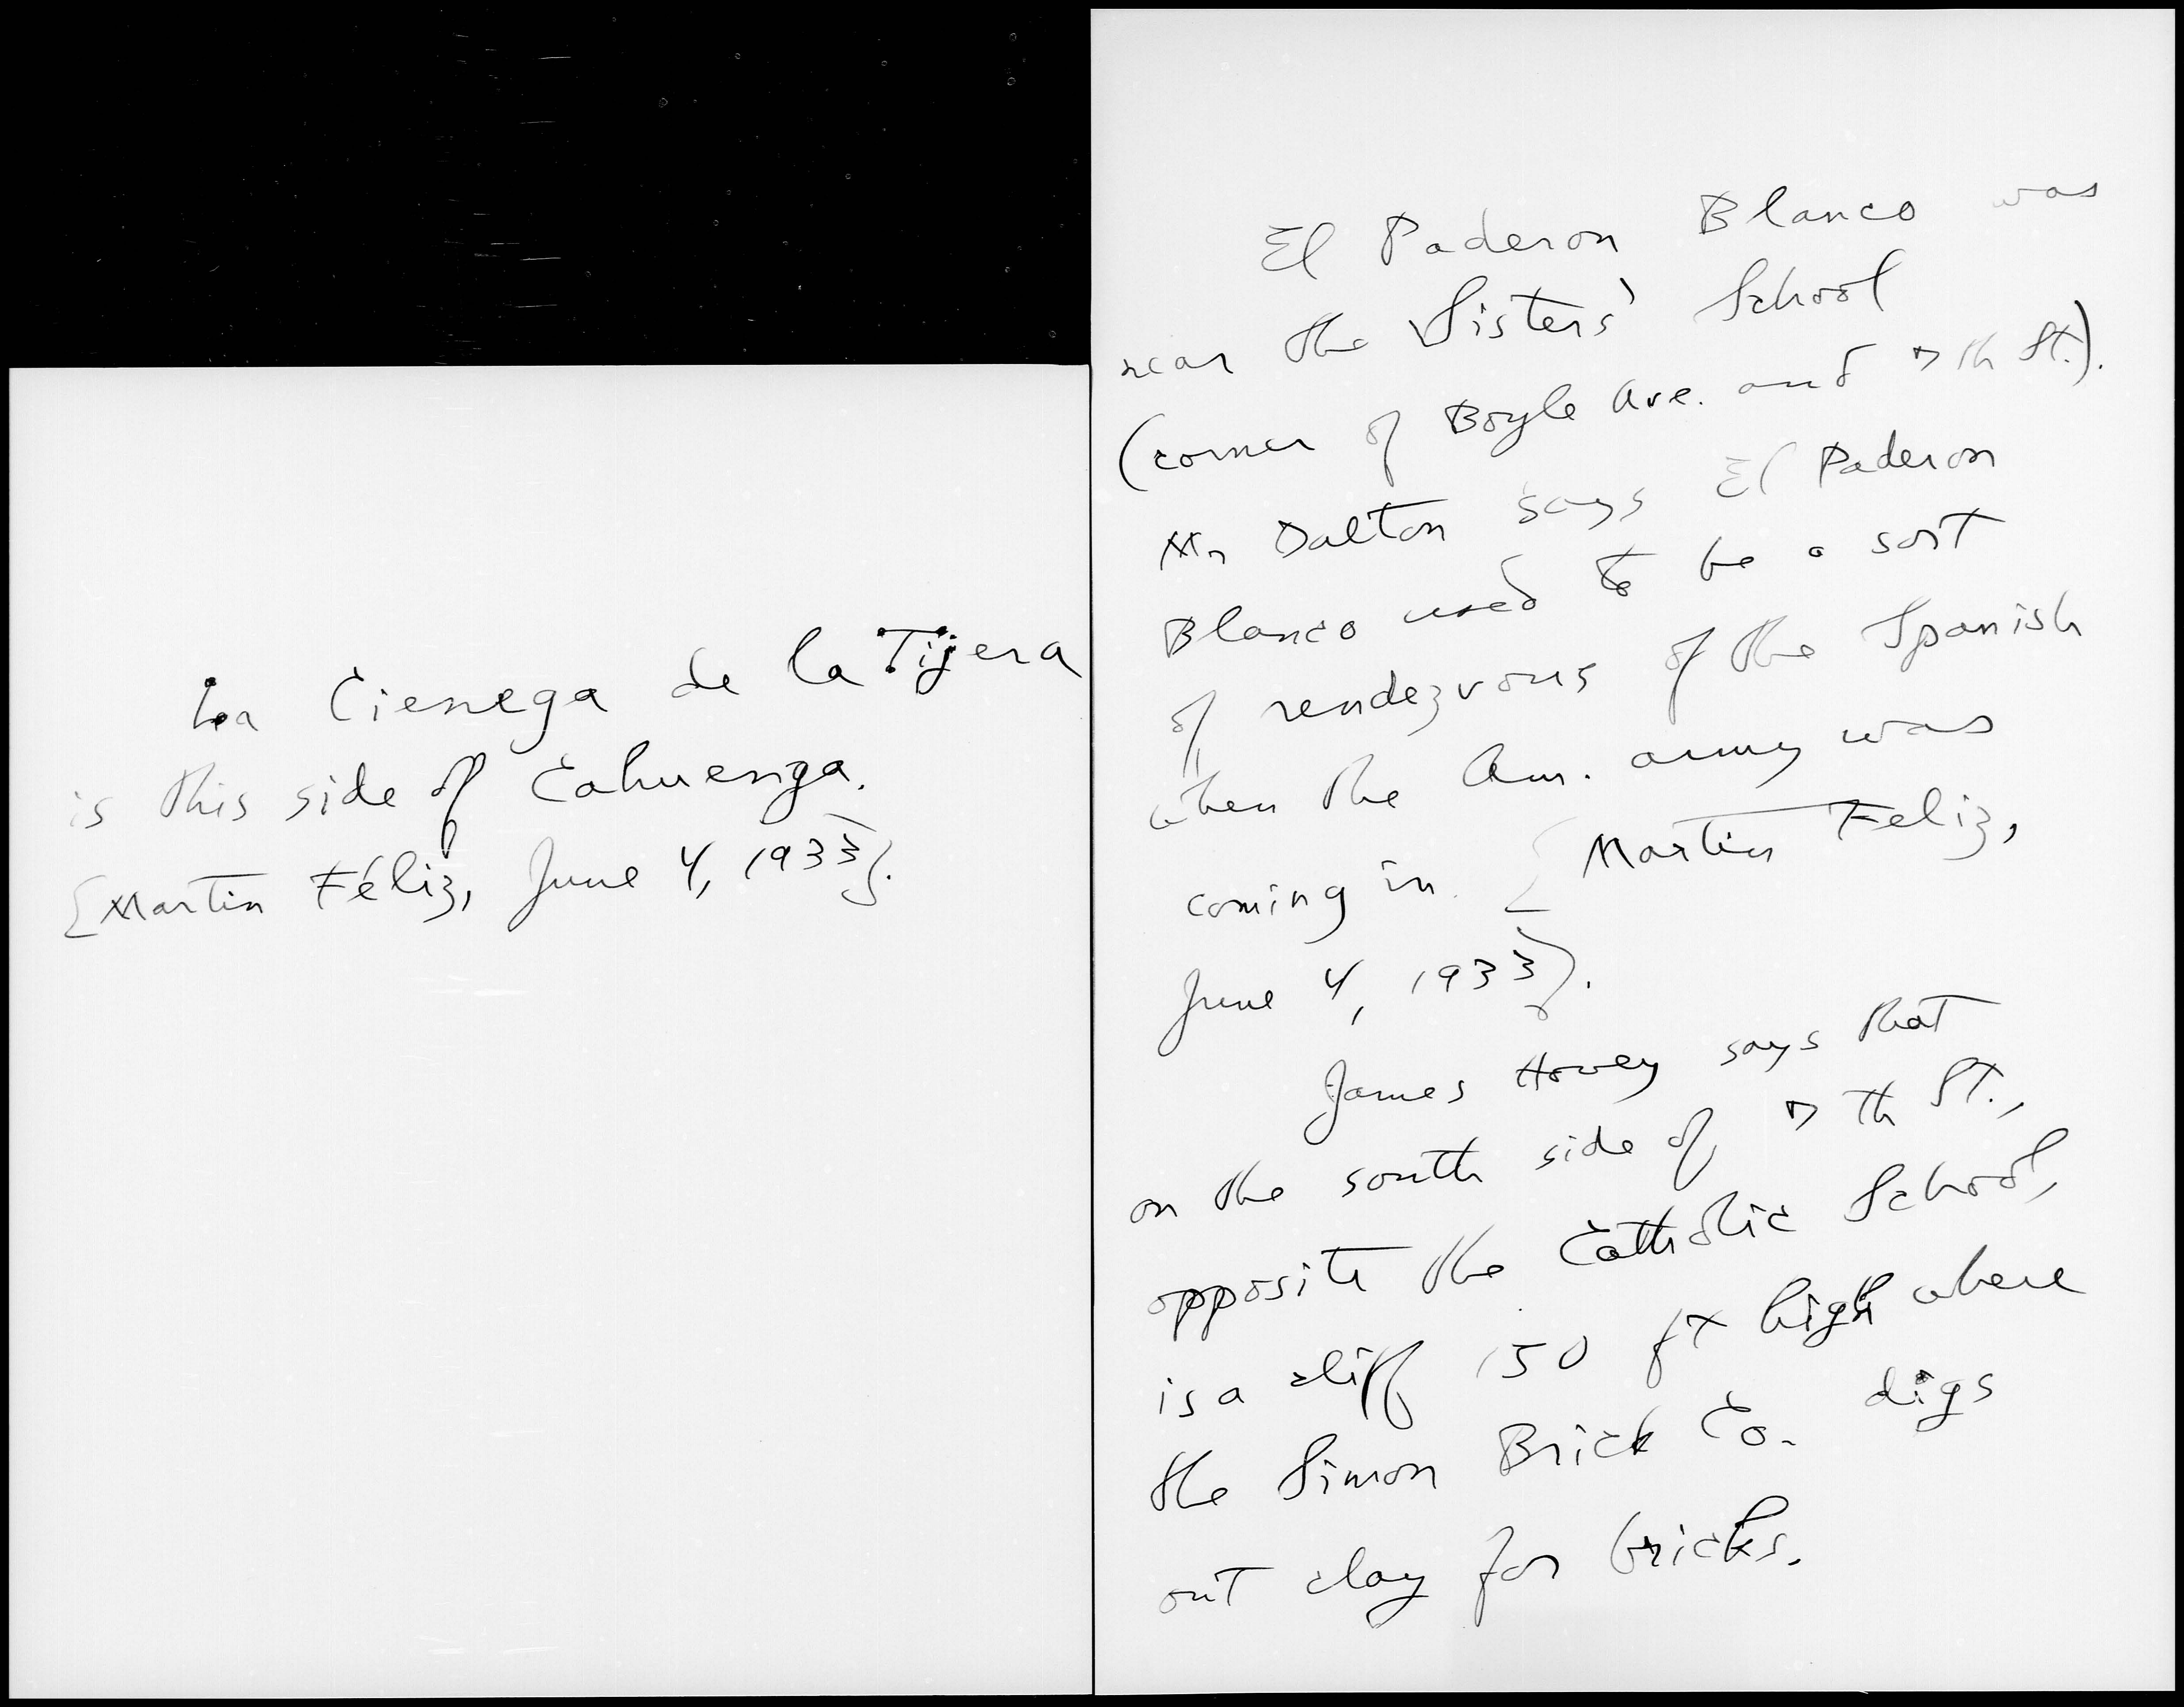 La Cienega de la Tijera
is this side of Cahuenga.
[Martin Féliz, June 4, 1933].
El Paderon Blanco was
near the Sisters' School
(corner of Boyle Ave. and 7th St.).
Mr Dalton says El Paderon
Blanco used to be a sort
of rendezvous of the Spanish
when the Am. army was
coming in. [Martin Feliz,
June 4, 1933].
James Hovey says that
on the south side of 7th St.,
opposite the Catholic School,
is a cliff 150 ft high where
the Simon Brick Co. digs
out clay for bricks.